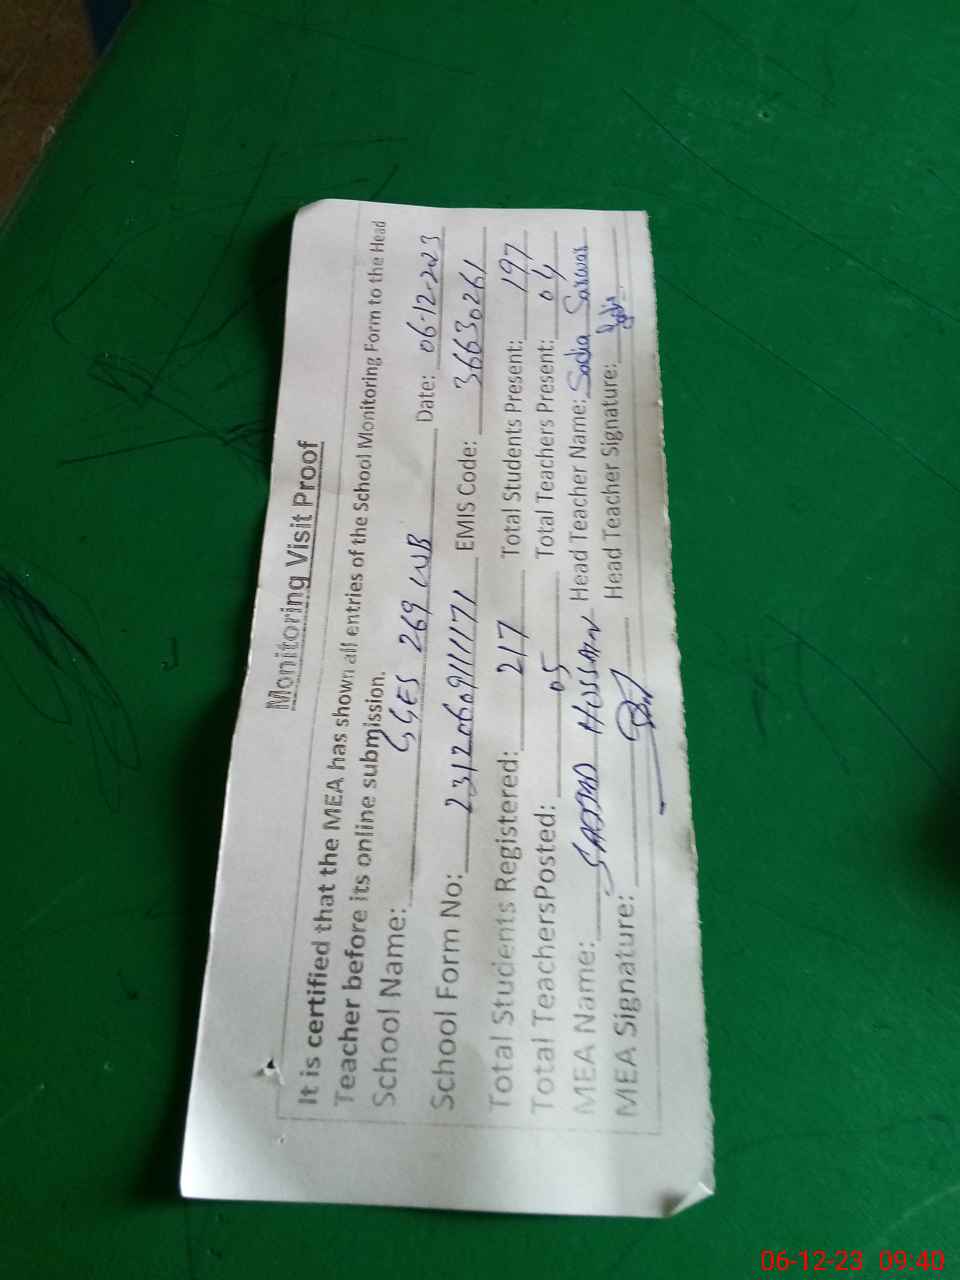 Monitoring Visit Proof
It is certified that the MEA has shown all entries of the School Monitoring Form to the Head
Teacher before its online submission.
School Name: GGES 269 WB Date: 06-12-2023
School Form No: EMIS Code: 36630261
Total Students Registered: 217 Total Students Present: 197
Total TeachersPosted: 05 Total Teachers Present: 04
MEA Name: SAJJAD HUSSAIN Head Teacher Name: Sadia Sarwar
MEA Signature: Head Teacher Signature:
06-12-23 09:40